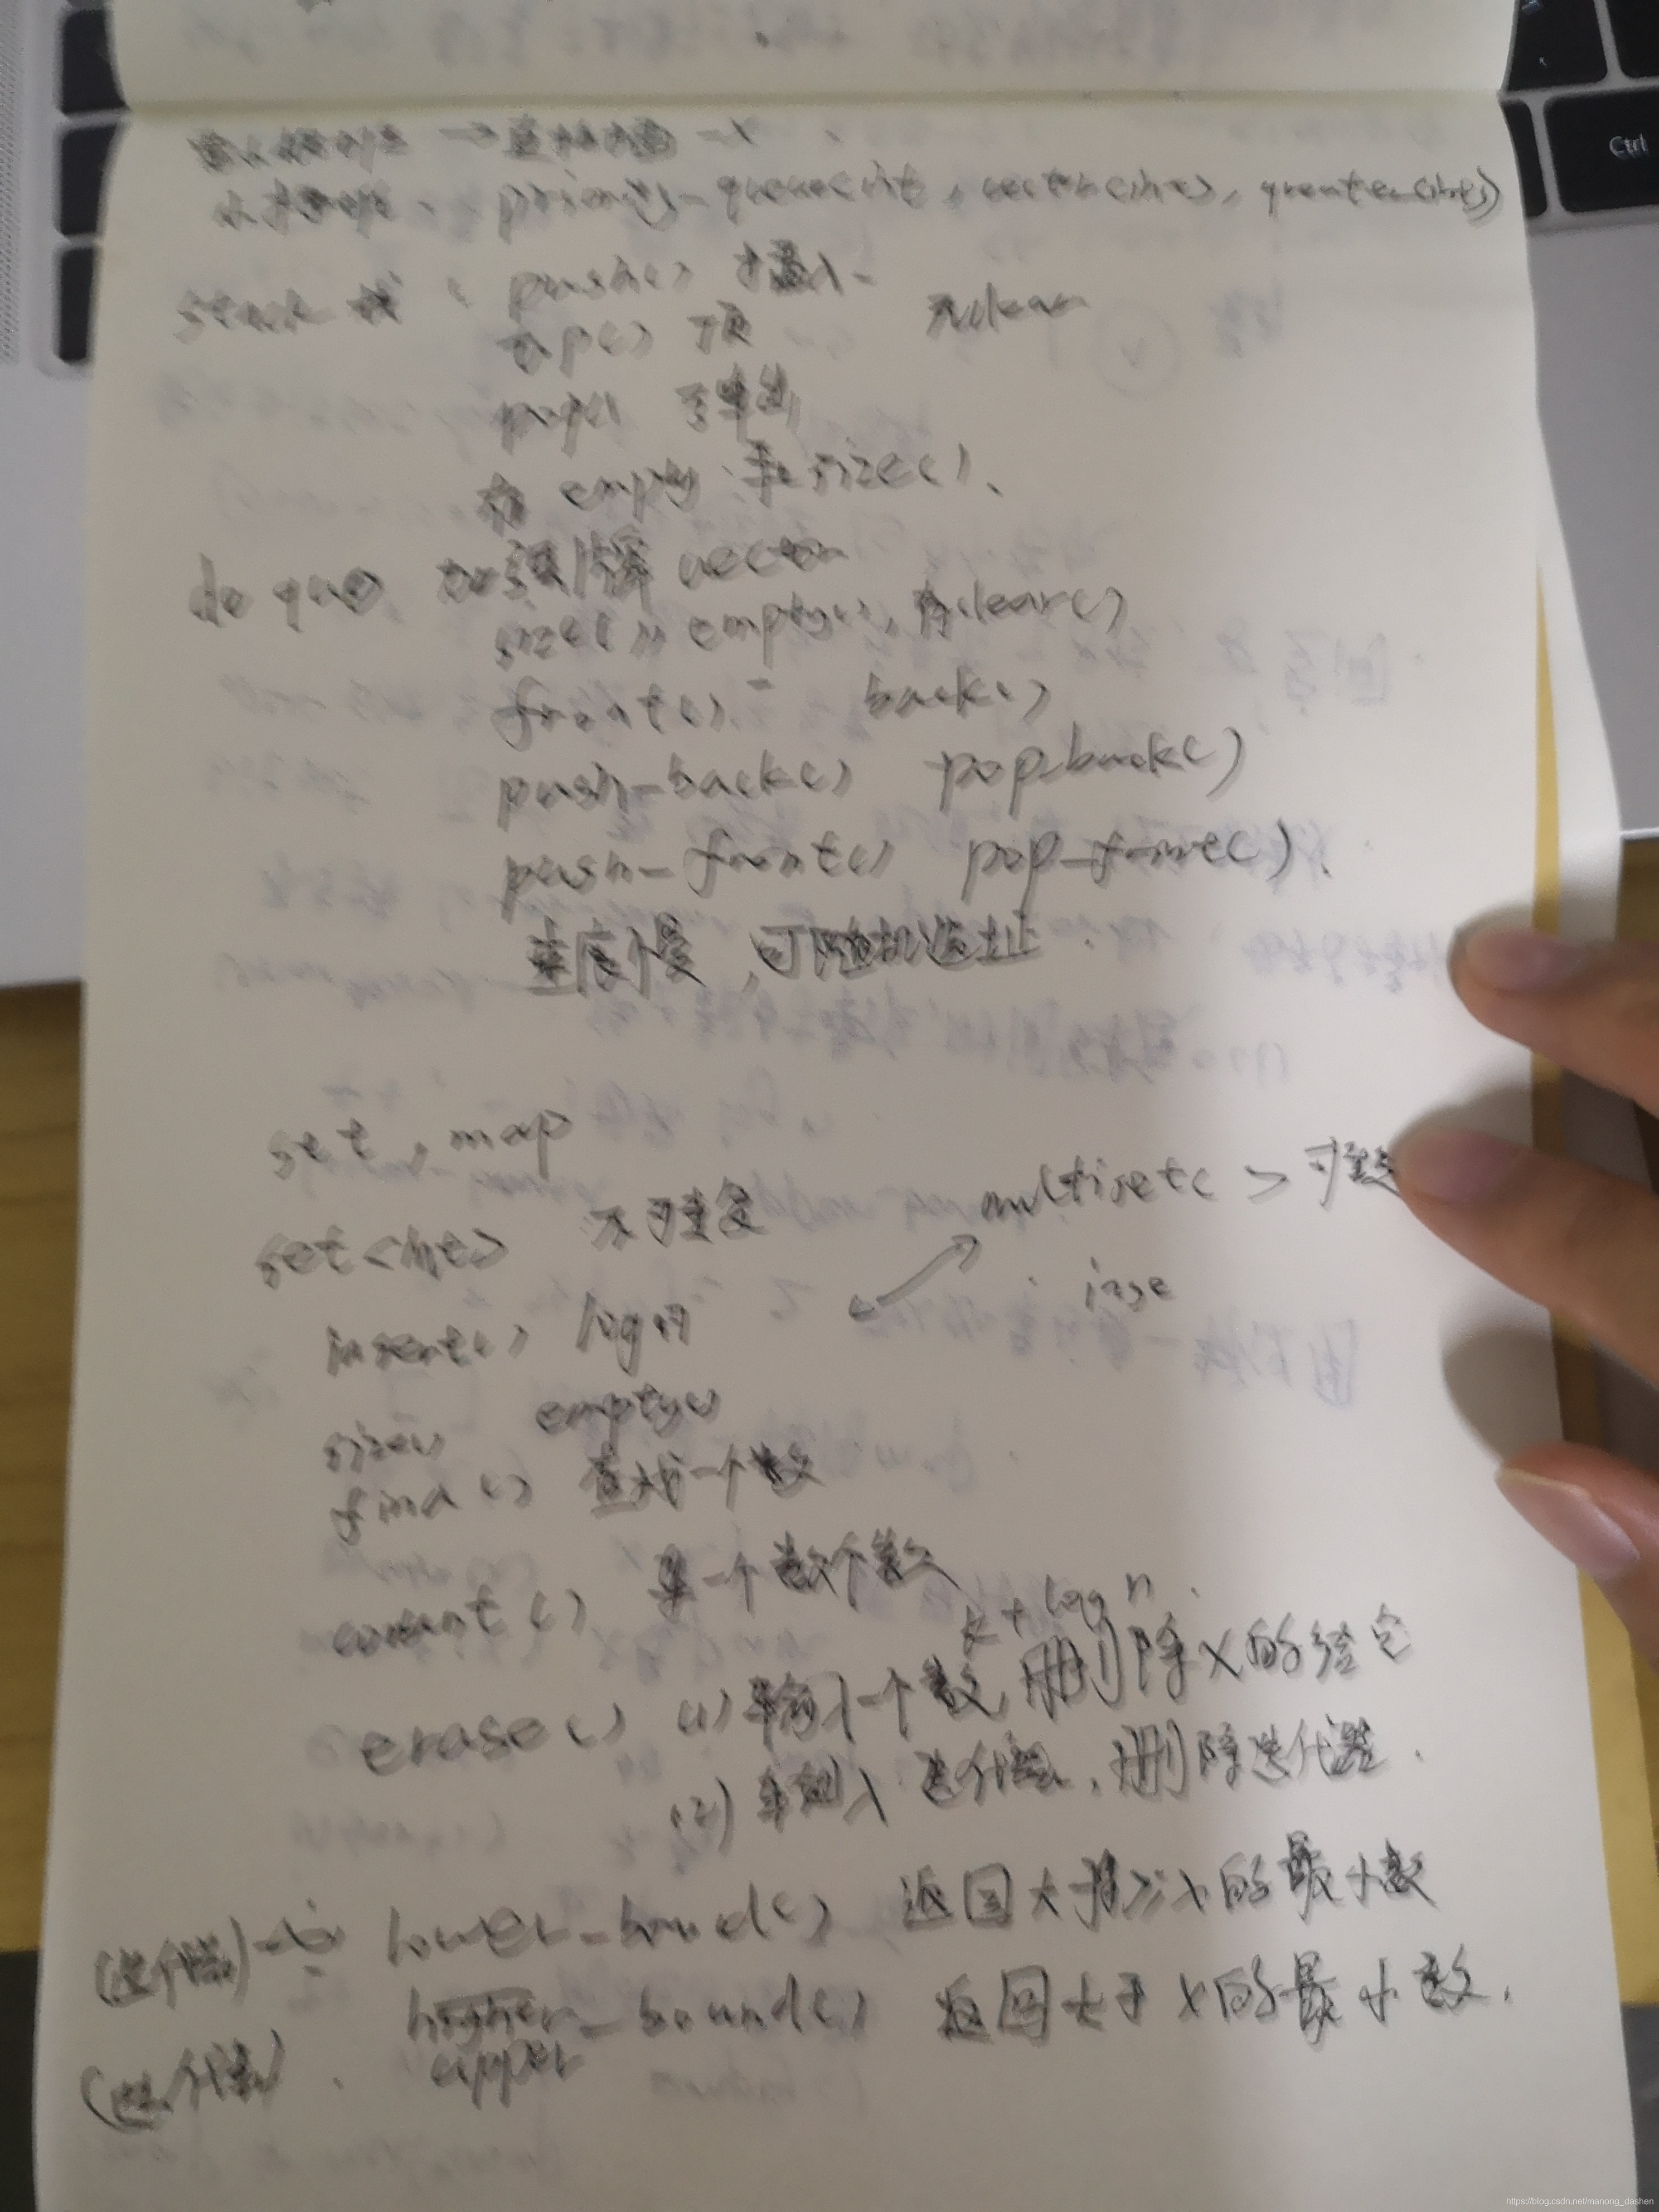 小根堆 priority_queue<int, vector<int>, greater<int>>
stack 栈 push() 插入 无clear
top() 顶
pop() 弹出
有 empty 和 size()、
deque 加强牌 vector
size(), empty(), 有clear()
front() back()
push_back() pop_back()
push_front() pop_front()
速度慢,可随机选址
set, map
set<int> 不可重复 multiset< > 可重
insert() logn
size() empty()
find() 查找一个数
count() 某一个数个数
k + logn
erase() (1) 输入一个数,删除X的
(2) 输入迭代器,删除迭代器.
(迭代器) lower_bound() 返回大于等于x的最小数
(迭代器) higher_bound() 返回大于x的最小数.
upper
Ctrl
https://blog.csdn.net/manong_dashen